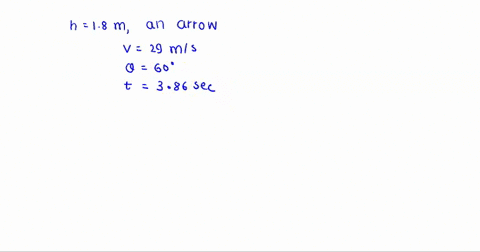 h = 1.8 m, an arrow
v = 29 m/s
θ = 60°
t = 3.86 sec